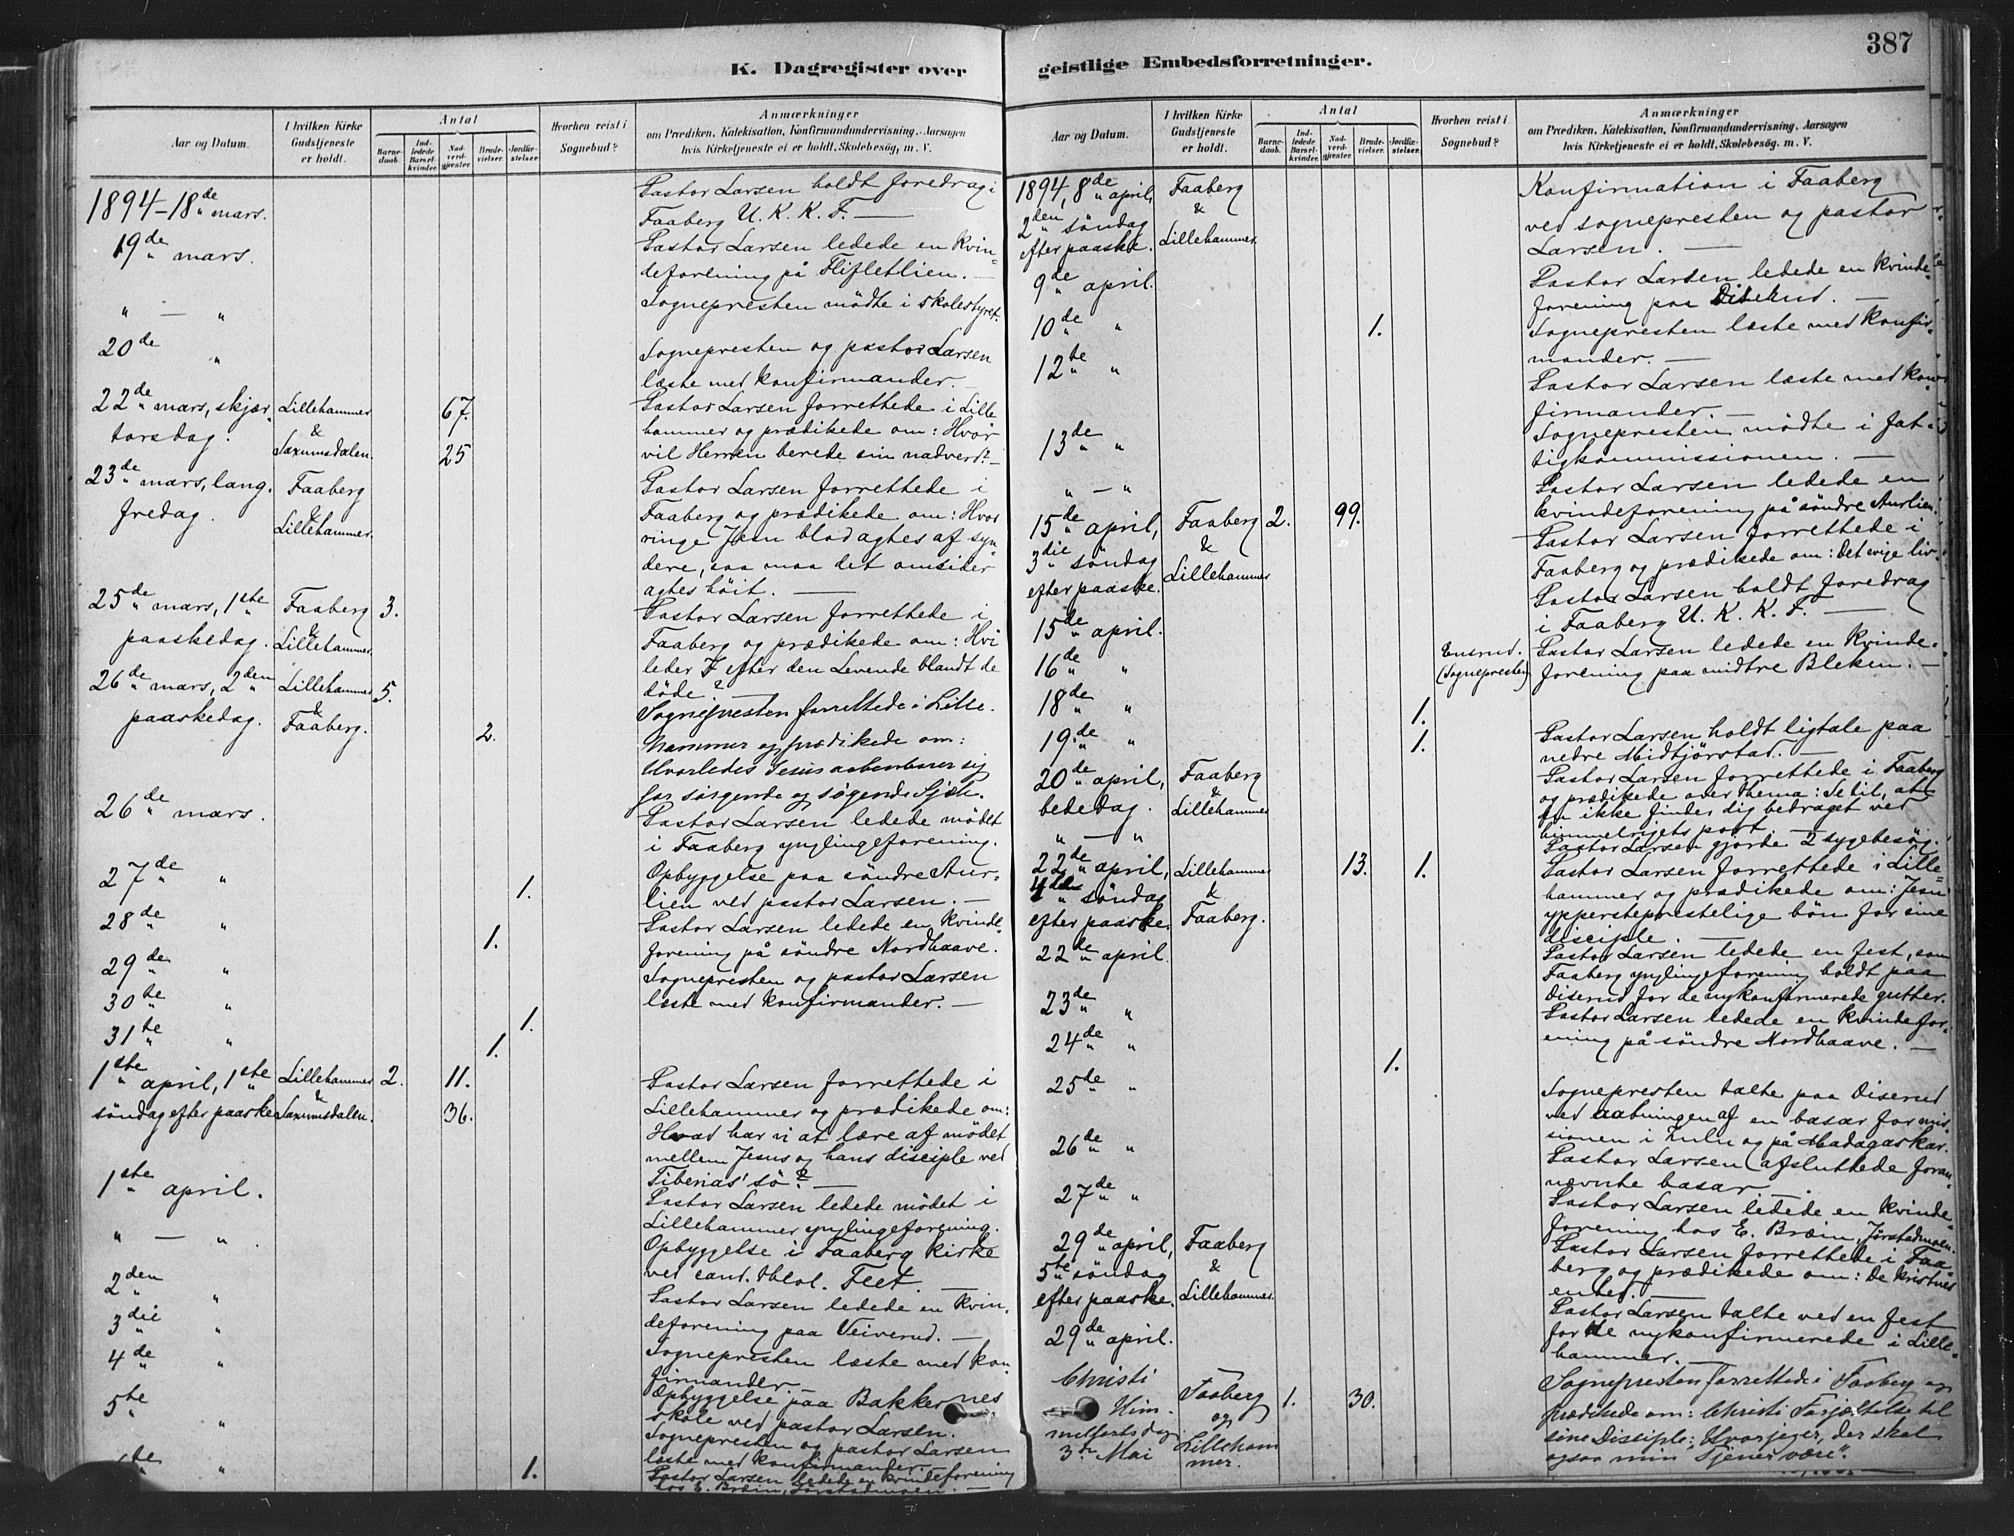 387
K. Dagregister over
geistlige Embedsforretninger.
Aar og Datum.
I hvilken Kirke Gudstjeneste er holdt.
Antal
Barnedaab.
Indledede Barselkvinder.
Nadverdgjester.
Brudevielser.
Jordfæstelser.
Hvorhen reist i Sognebud?
Anmærkninger
om Prædiken, Katekisation, Konfirmandundervisning, Aarsagen
hvis Kirketjeneste ei er holdt, Skolebesøg, m. V.
1894 - 18de mars.
Pastor Larsen holdt foredrag i
Faaberg U. K. K. F. —
19de mars.
Pastor Larsen ledede en kvin-
deforening på Flifletlien. —
" — "
Sognepresten mødte i skolestyret.
20de "
Sognepresten og pastor Larsen
læste med konfirmander. —
22de mars, skjær- Lillehammer 67.
torsdag. & Saxumsdalen. 25
Pastor Larsen forrettede i Lille
hammer og prædikede om: Hvor
vil Herren berede sin nadverd? —
23de mars, lang- Faaberg
fredag. & Lillehammer.
Pastor Larsen forrettede i
Faaberg og prædikede om: Hvor
ringe Jesu blod agtes af syn-
dere, saa maa det omsider
agtes høit. —
25de mars, 1ste Faaberg 3.
paaskedag. & Lillehammer.
Pastor Larsen forrettede i
Faaberg og prædikede om: Hvi
leder I efter den Levende blandt de
døde? —
26de mars, 2den Lillehammer 5.
paaskedag. & Faaberg. 2.
Sognepresten forrettede i Lille-
hammer og prædikede om:
Hvorledes Jesus aabenbarer sig
for sørgende og søgende Sjæle.
26de mars.
Pastor Larsen ledede mødet
i Faaberg ynglingeforening.
27de " 1.
Opbyggelse paa søndre Aur-
lien ved pastor Larsen. —
28de " 1.
Pastor Larsen ledede en kvinde-
forening på søndre Nordhaave.
29de "
Sognepresten og pastor Larsen
læste med konfirmander. —
30te " 1.
31te " 1.
1ste april, 1ste Lillehammer 2. 11.
søndag efter paaske & Saxumsdalen. 36.
Pastor Larsen forrettede i
Lillehammer og prædikede om:
Hvad har vi at lære af mødet
mellem Jesus og hans disciple ved
Tiberias' sø? —
1ste april.
Pastor Larsen ledede mødet i
Lillehammer ynglingeforening.
" — "
Opbyggelse i Faaberg kirke
ved cand. theol. Feet. —
2den "
Pastor Larsen ledede en kvin-
deforening paa Veiverud. —
3die "
4de "
Sognepresten læste med kon-
firmander.
5te "
Opbyggelse paa Bakkernes
skole ved pastor Larsen.
Sognepresten og pastor Larsen
læste med konfirmander.
1.
Pastor Larsen ledede en kvindeforening
hos E. Bræin, Jørstadmoen. —
Aar og Datum.
I hvilken Kirke Gudstjeneste er holdt.
Antal
Barnedaab.
Indledede Barselkvinder.
Nadverdgjester.
Brudevielser.
Jordfæstelser.
Hvorhen reist i Sognebud?
Anmærkninger
om Prædiken, Katekisation, Konfirmandundervisning, Aarsagen
hvis Kirketjeneste ei er holdt, Skolebesøg, m. V.
1894, 8de april, Faaberg
2den søndag & Lillehammer
efter paaske.
Konfirmation i Faaberg
ved sognepresten og pastor
Larsen. —
9de april.
Pastor Larsen ledede en kvinde-
forening paa Diserud. —
10de " 1.
Sognepresten læste med konfir-
mander. —
12te "
Pastor Larsen læste med kon-
firmander. —
13de "
Sognepresten mødte i fat-
tigkommissionen. —
" — "
Pastor Larsen ledede en
kvindeforening på søndre Aurlien.
15de april, Faaberg 2. 99.
3die søndag & Lillehammer
efter paaske.
Pastor Larsen forrettede i
Faaberg og prædikede om: Det evige liv
15de april.
Pastor Larsen holdt foredrag
i Faaberg U. K. K. F. —
16de "
Ensrud.
(Sognepresten)
Pastor Larsen ledede en kvinde-
forening paa midtre Bleken. —
18de " 1.
19de " 1.
Pastor Larsen holdt ligtale paa
nedre Midtjørstad. —
20de april, Faaberg
bededag. & Lillehammer
Pastor Larsen forrettede i Faaberg
og prædikede over thema: Se til, at
du ikke finder dig bedraget ved
himmelrigets port
" — "
Pastor Larsen gjorde 2 sygebesøg.
22de april, Lillehammer 13. 1.
4de søndag & Faaberg.
efter paaske.
Pastor Larsen forrettede i Lille-
hammer og prædikede om: Jesu
ypperstepræstelige bøn for sine
disciple. —
22de april.
Pastor Larsen ledede en fest, som
Faaberg ynglingeforening holdt paa
Diserud for de nykonfirmerede gutter.
23de "
Pastor Larsen ledede en kvindefor-
ening på søndre Nordhaave. —
24de " 1.
25de "
Sognepresten talte paa Diserud
ved aabningen af en basar for mis-
sionen i Zulu og på Madagaskar.
26de "
Pastor Larsen afsluttede foran-
nævnte basar.
27de "
Pastor Larsen ledede en kvinde-
forening hos E. Bræin, Jørstadmoen.
29de april, Faaberg
5te søndag & Lillehammer.
efter paaske.
Pastor Larsen forrettede i Faa-
berg og prædikede om: De kristnes
enhed. —
29de april.
Pastor Larsen talte ved en fest
for de nykonfirmerede i Lille-
hammer. —
Christi Him-
melfartsdag
3de Mai
Faaberg og Lilleham
mer.
1. 30.
Sognepresten forrettede i Faaberg og
prædikede om: Christi Forjættelse til
sine Disciple: Hvor jeg er, der skal
ogsaa min Tjener være".